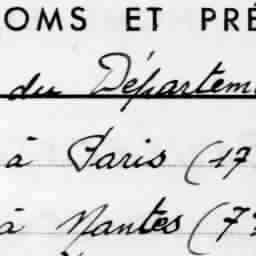 OMS ET PRÉ
du Départem
à Paris (17
à Nantes (7